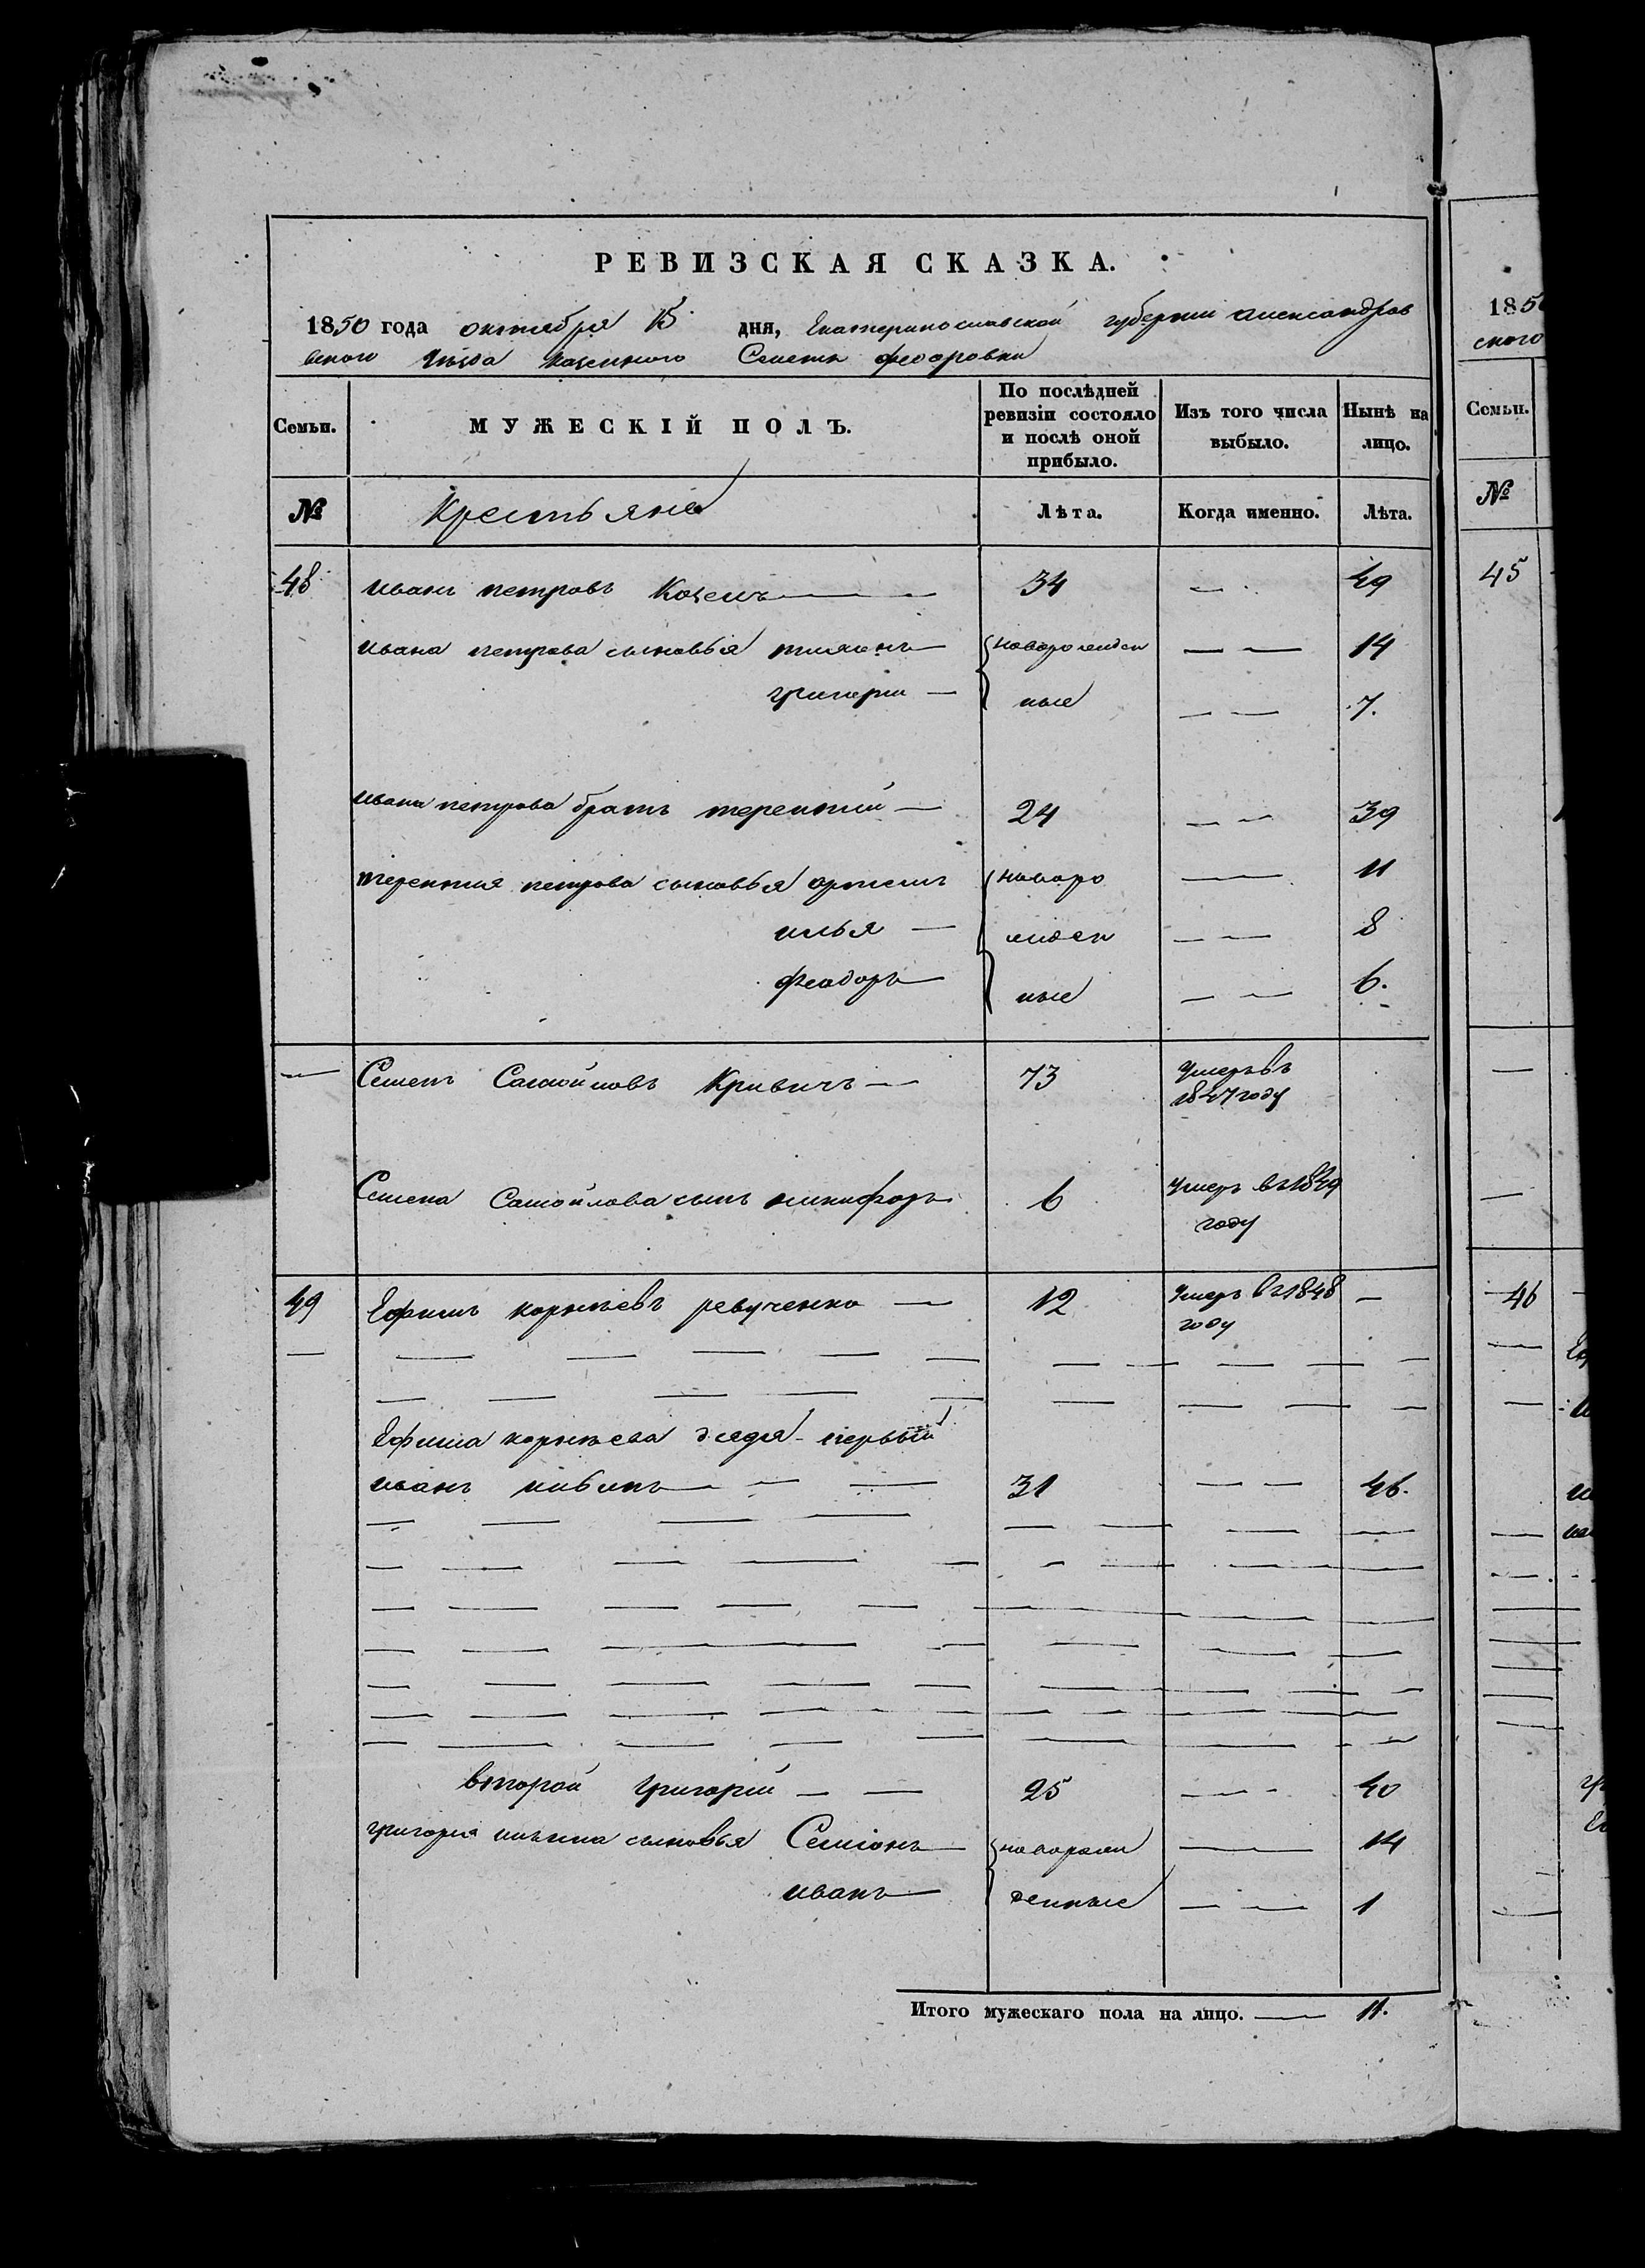 РЕВИЗСКАЯ СКАЗКА.
1850 года октября 15 дня, Екатеринославской губернии александров
ского уѣзда казенного Селенія федоровки
Семьи. МУЖЕСКІЙ ПОЛЪ. По послѣдней ревизіи состояло и послѣ оной прибыло. Изъ того числа выбыло. Нынѣ на лицо.
№ Крестьяне Лѣта. Когда именно. Лѣта.
48 иванъ петровъ 34 — 49
ивана петрова сыновья тихонъ — новорожден — — 14
григорій — ные — — 7.
ивана петрова братъ терентій — 24 — — 39
терентія петрова сыновья артемъ новоро — 11
илья — жден — — 8
феодоръ — ные — — 6.
— Семенъ Самойловъ Кривичъ — 73 умеръ въ
1847 году
Семена Самойлова сынъ никифоръ 6 умеръ въ 1849
году
49 Ефимъ корнѣевъ ревученко — 12 умеръ въ 1848 —
году
Ефима корнѣева дядя первый
иванъ — — — 31 — — 46.
второй григорій — — 25 — - 40
григорія сыновья Семіонъ — новорож — 14
иванъ — денные — — 1
Итого мужескаго пола на лицо. — 11.
1850
ского
Семьи.
№
45
46